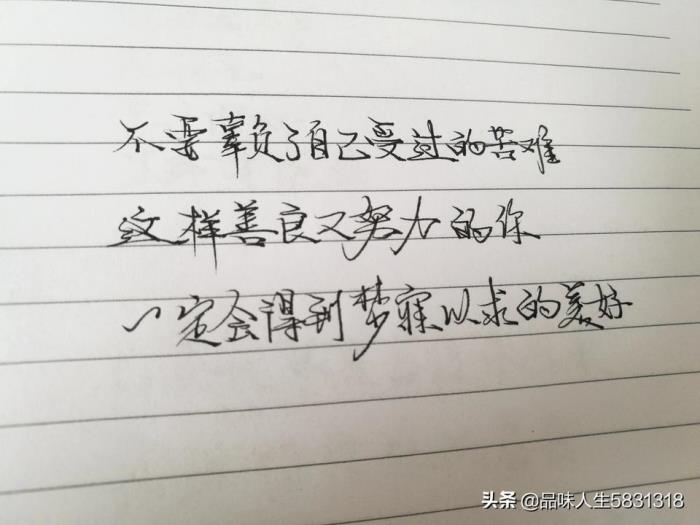 不要辜负了自己受过的苦难
这样善良又努力的你
一定会得到梦寐以求的美好
头条 @品味人生5831318